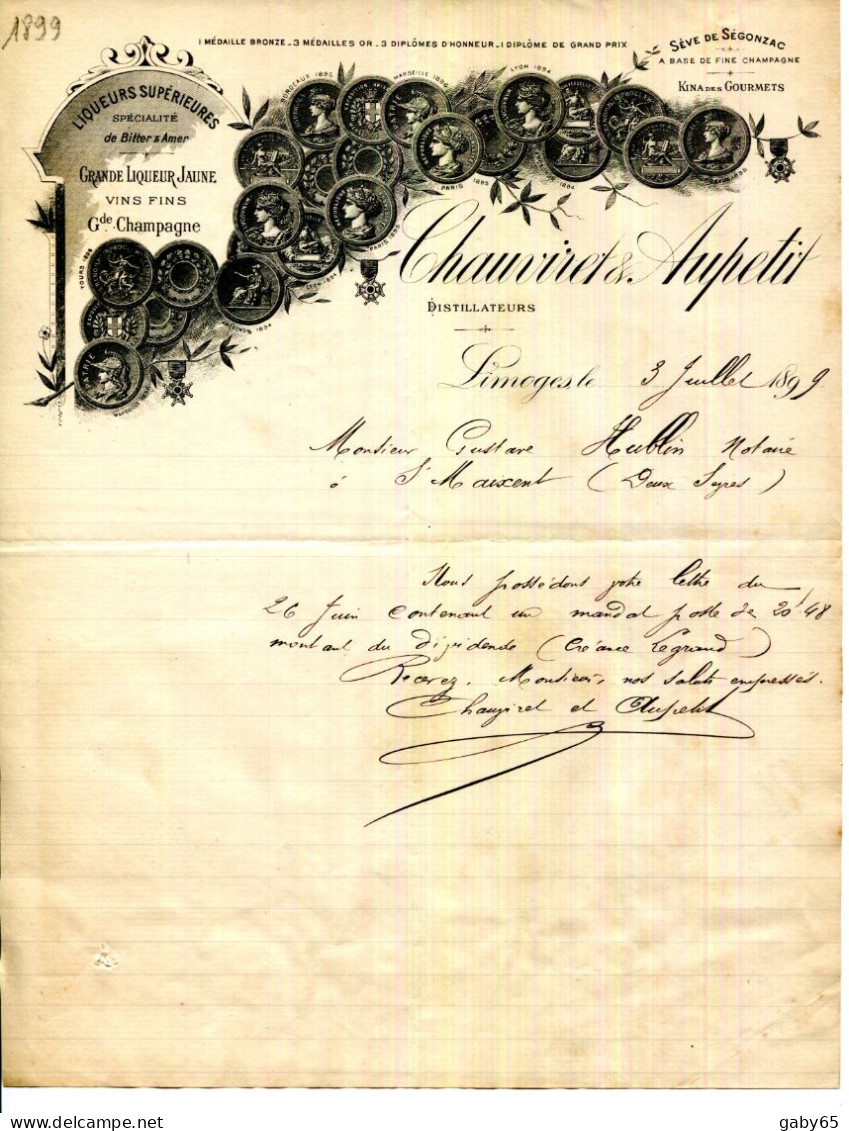 1899
1 MÉDAILLE BRONZE - 3 MÉDAILLES OR - 3 DIPLÔMES D'HONNEUR - 1 DIPLÔME DE GRAND PRIX
SÈVE DE SÉGONZAC
A BASE DE FINE CHAMPAGNE
KINA DES GOURMETS
LIQUEURS SUPÉRIEURES
SPÉCIALITÉ
de Bitter & Amer
GRANDE LIQUEUR JAUNE
VINS FINS
Gde. Champagne
BORDEAUX 1895
MARSEILLE 1896
LYON 1894
PARIS 1895
TOURS 1896
LYON 1894
PATRIE
Chauviret & Aupetit
DISTILLATEURS
Limoges, le 3 Juillet 1899
Monsieur Gustave Hublin Notaire
à St Maixent (Deux Sèvres)
Nous possédons votre lettre du
26 Juin contenant un mandat poste de 20f 48
montant du dividende (Créance Legrand)
Recevez, Monsieur, nos saluts empressés.
Chauviret et Aupetit
gaby65